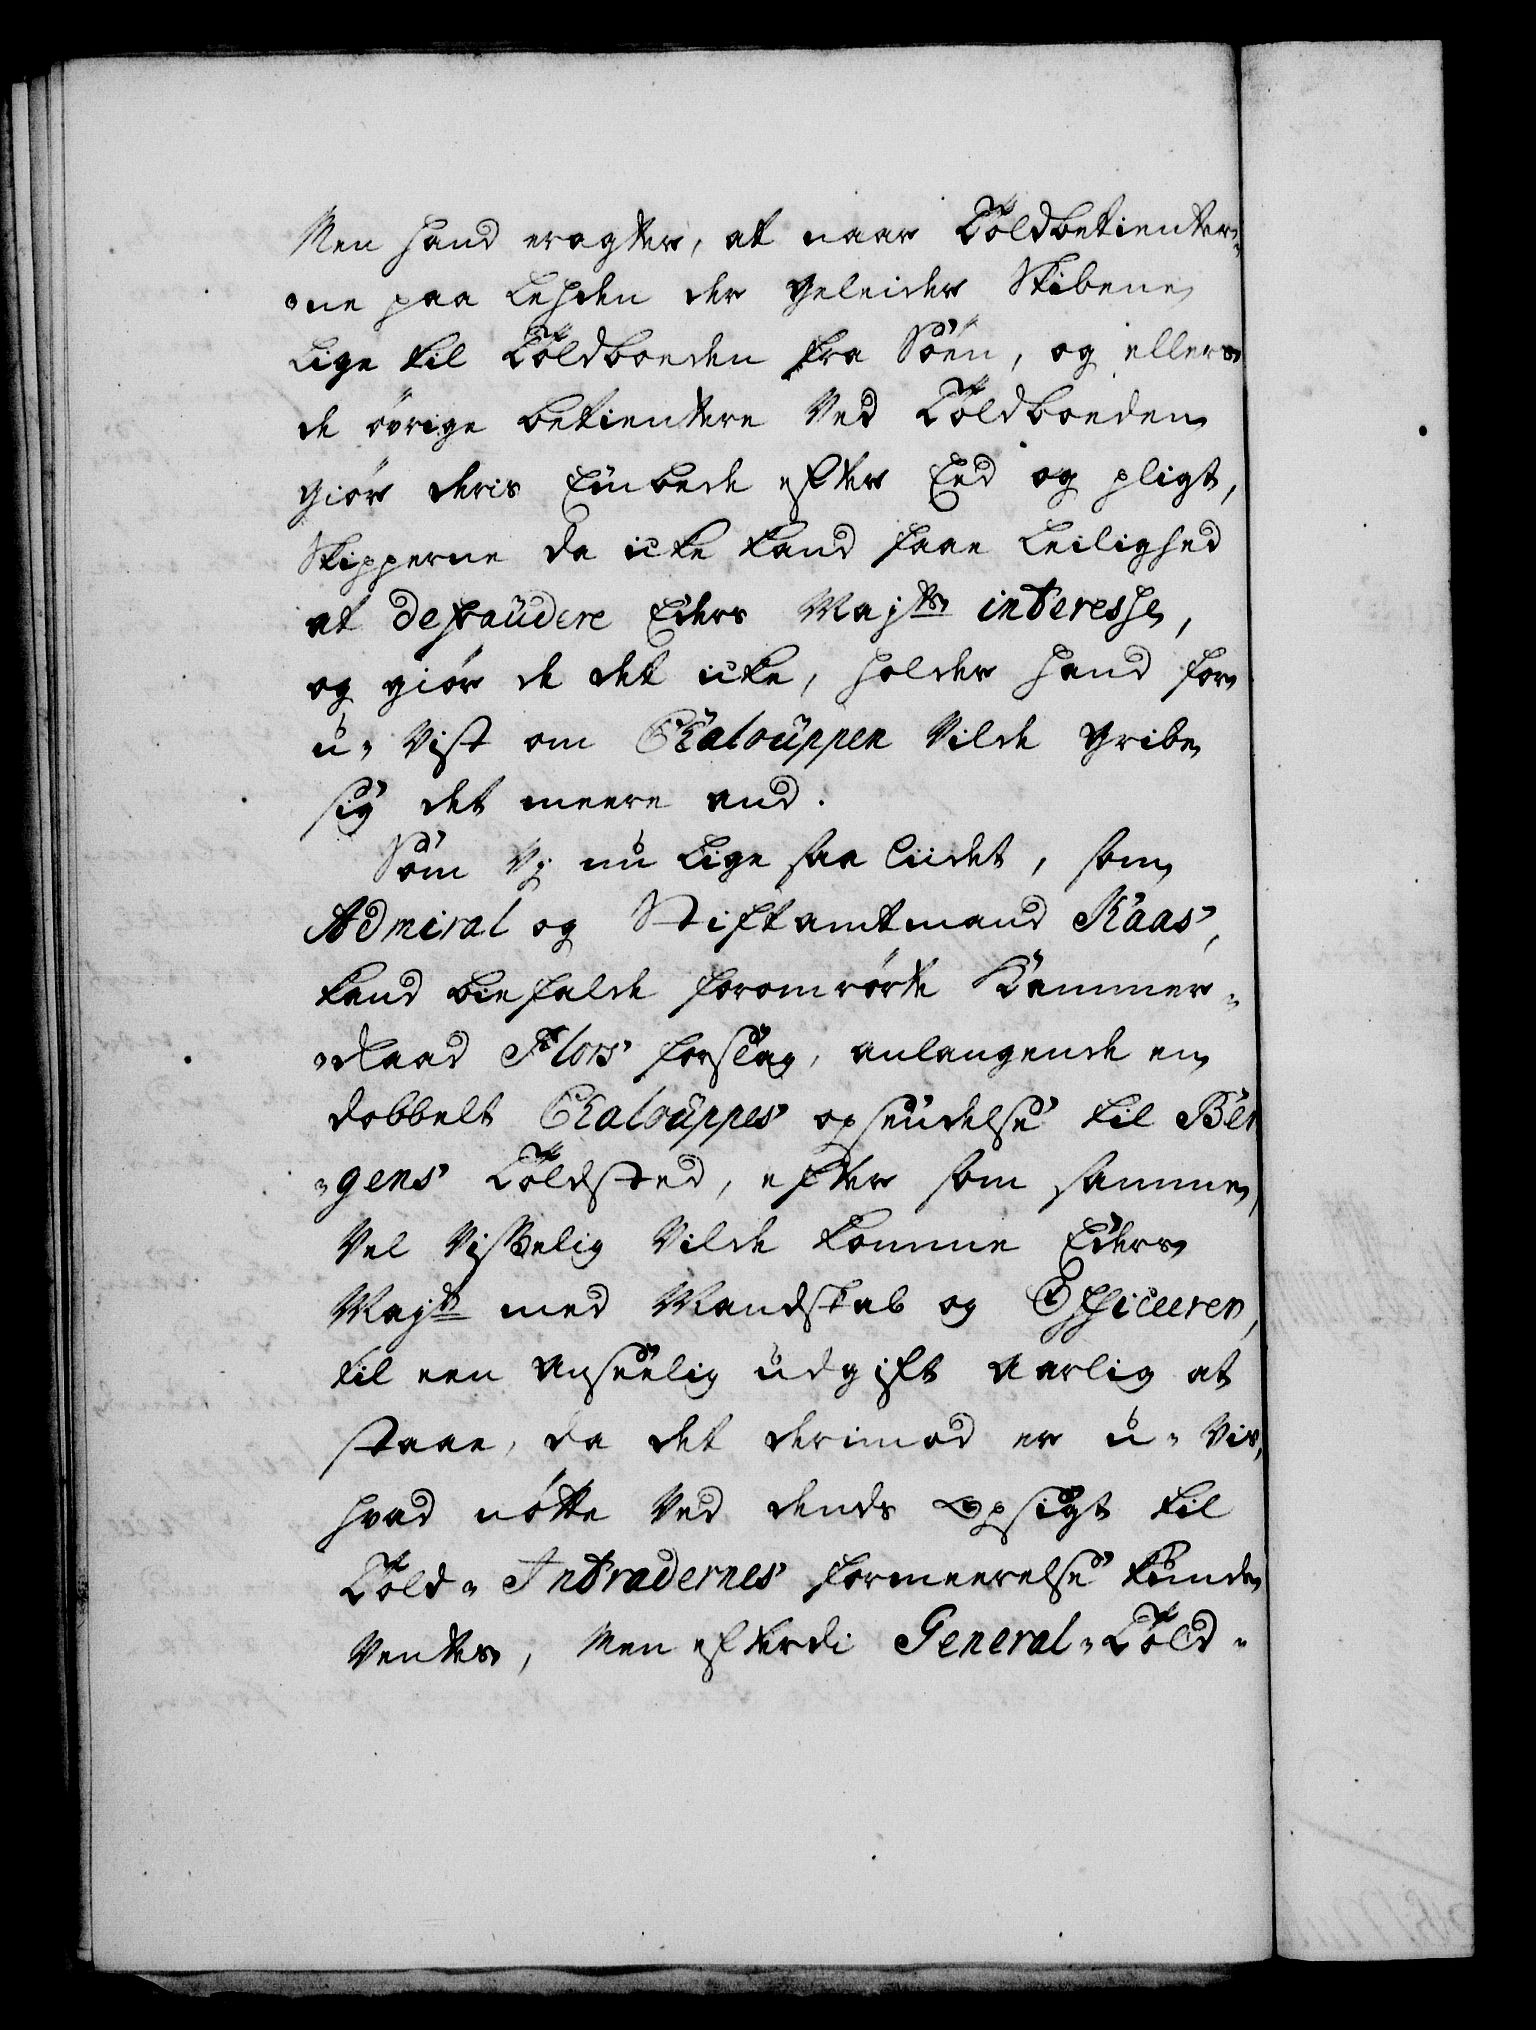 Men hand eragter, at naar Toldbetienter„
„ne paa Lehden der geleider Skibene
Lige til Toldboeden fra Söen, og ellers
de övrige betientere Ved Toldboeden
giör deris Embede efter Eed og pligt,
Skipperne da icke kand faae Leilighed
at defraudere Eders Majts interesse,
og giör de det icke, holder hand for
u„ vist om Chalouppen Vilde gribe
sig det meere and.
Som Vj nu Lige saa liidet, som
Admiral og Stiftamtmand Kaas,
kand biefalde forommrörte Kammer„
„Raad Flors forslag, anlangende en
dobbelt Chalouppes opsendelse til Ber
„gens Toldsted, efter som samme
Vel visselig Vilde komme Eders
Majt med Mandskab og Officerer,
til een anseelig udgift aarlig at
staae, da det derimod er u„ vis,
hvad nötte Ved dends Opsigt til
Told„ Intradernes formeerelse kunde
Ventes, Men efterdi General„Told„